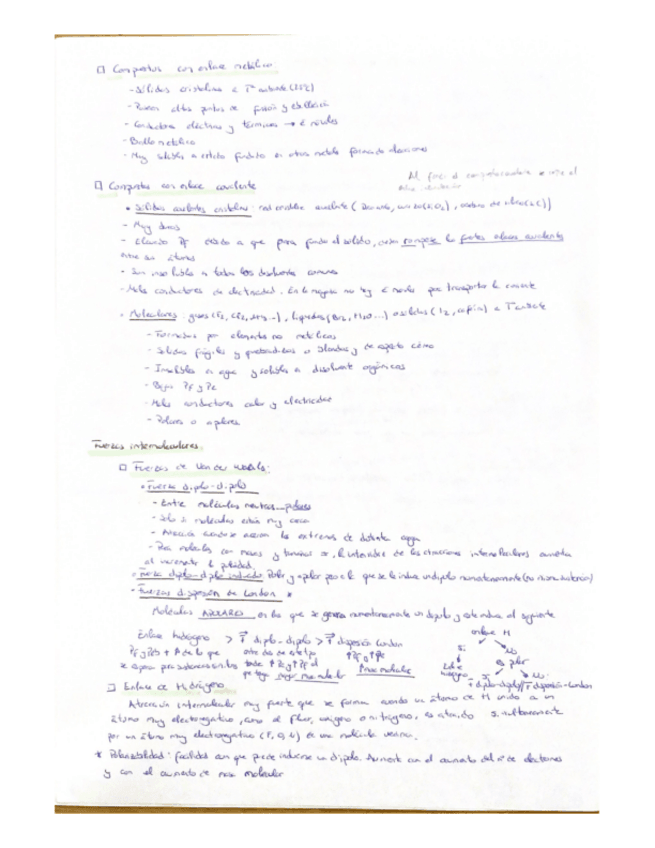 □ Compuestos con enlace metálico:
- Sólidos cristalinos a Tª ambiente (25ºC)
- Poseen altos puntos de fusión y ebullición
- Conductores eléctricos y térmicos → e⁻ móviles
- Brillo metálico
- Muy solubles a estado fundido en otros metales formando aleaciones
□ Compuestos con enlace covalente
Al final el
• Sólidos covalentes cristalinos: red covalente
- Muy duros
- Elevado Pf debido a que para fundir el sólido, rompese los fuertes enlaces covalentes
entre sus átomos
- Son insolubles a todos los disolventes comunes
- Malos conductores de electricidad. En la mayoría no hay e⁻ móviles que transporten la corriente
• Moleculares: gases (F2, Cl2, ), líquidos (Br2, H2O...) o sólidos (I2, ) a Tª ambiente
- Formados por elementos no metálicos
- Sólidos frágiles y quebradizos o blandos y de aspecto céreo
- Insolubles en agua y solubles a disolvente orgánicos
- Bajos Pf y Pe
- Malos conductores calor y electricidad
- Polares o apolares
Fuerzas intermoleculares
□ Fuerzas de Van der Waals:
• Fuerza dipolo-dipolo
- Entre moléculas neutras polares
- Solo si moléculas están muy cerca
- Atracción cuando se acercan los extremos de distinta carga
- Para moléculas con masas y tamaños , la intensidad de las atracciones intermoleculares aumenta
al incrementar la polaridad
• Fuerza dipolo-dipolo inducido: Polar y apolar en la que se le induce un dipolo momentáneamente
• Fuerzas dispersión de London *
Moléculas APOLARES en las que se genera momentáneamente un dipolo y este induce al siguiente
Enlace hidrógeno > F dipolo-dipolo > F dispersión London
enlace H
Sí No
Enlace hidrógeno
es polar
Sí No
F dipolo-dipolo F dispersión London
mayor masa molecular
masa molecular
□ Enlace de Hidrógeno
Atracción intermolecular muy fuerte que se forma cuando un átomo de H unido a un
átomo muy electronegativo, como el flúor, oxígeno o nitrógeno, es atraído simultáneamente
por un átomo muy electronegativo (F, O, N) de una molécula vecina.
* Polarizabilidad: facilidad con que puede inducirse un dipolo. Aumenta con el aumento del nº de electrones
y con el aumento de masa molecular